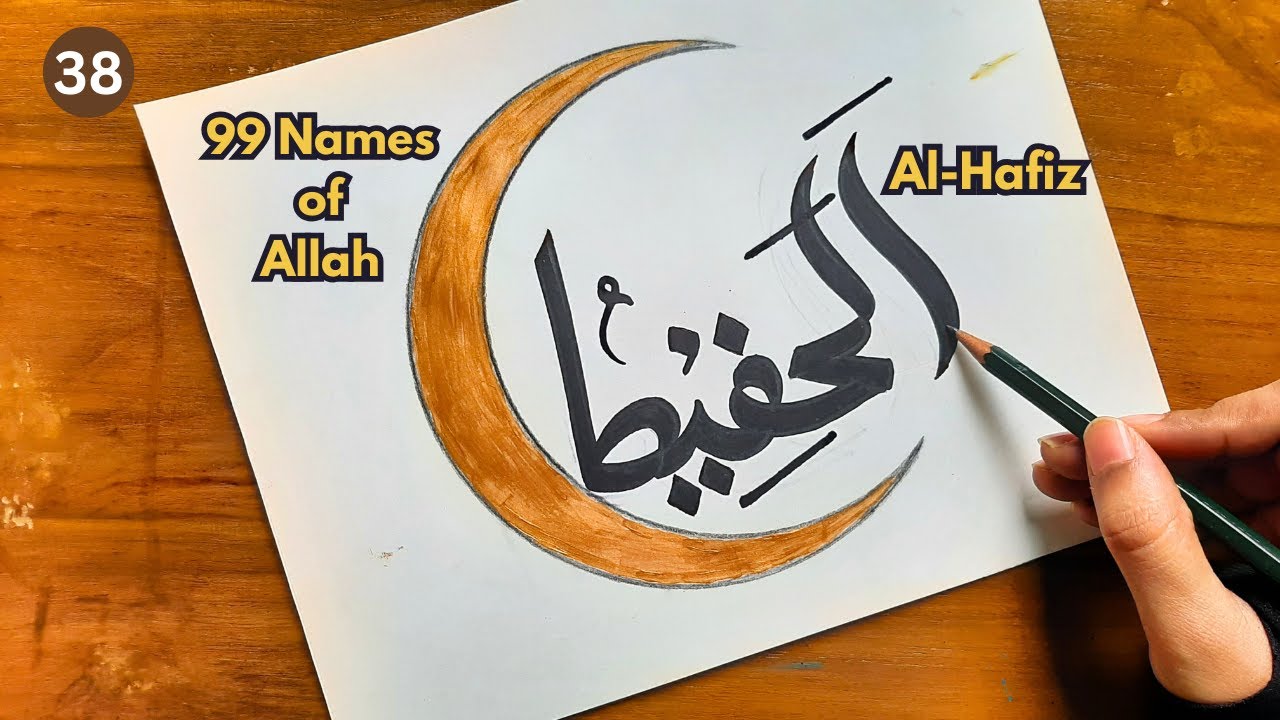 38
99 Names
of
Allah
Al-Hafiz
اَلحَفِيْطُ